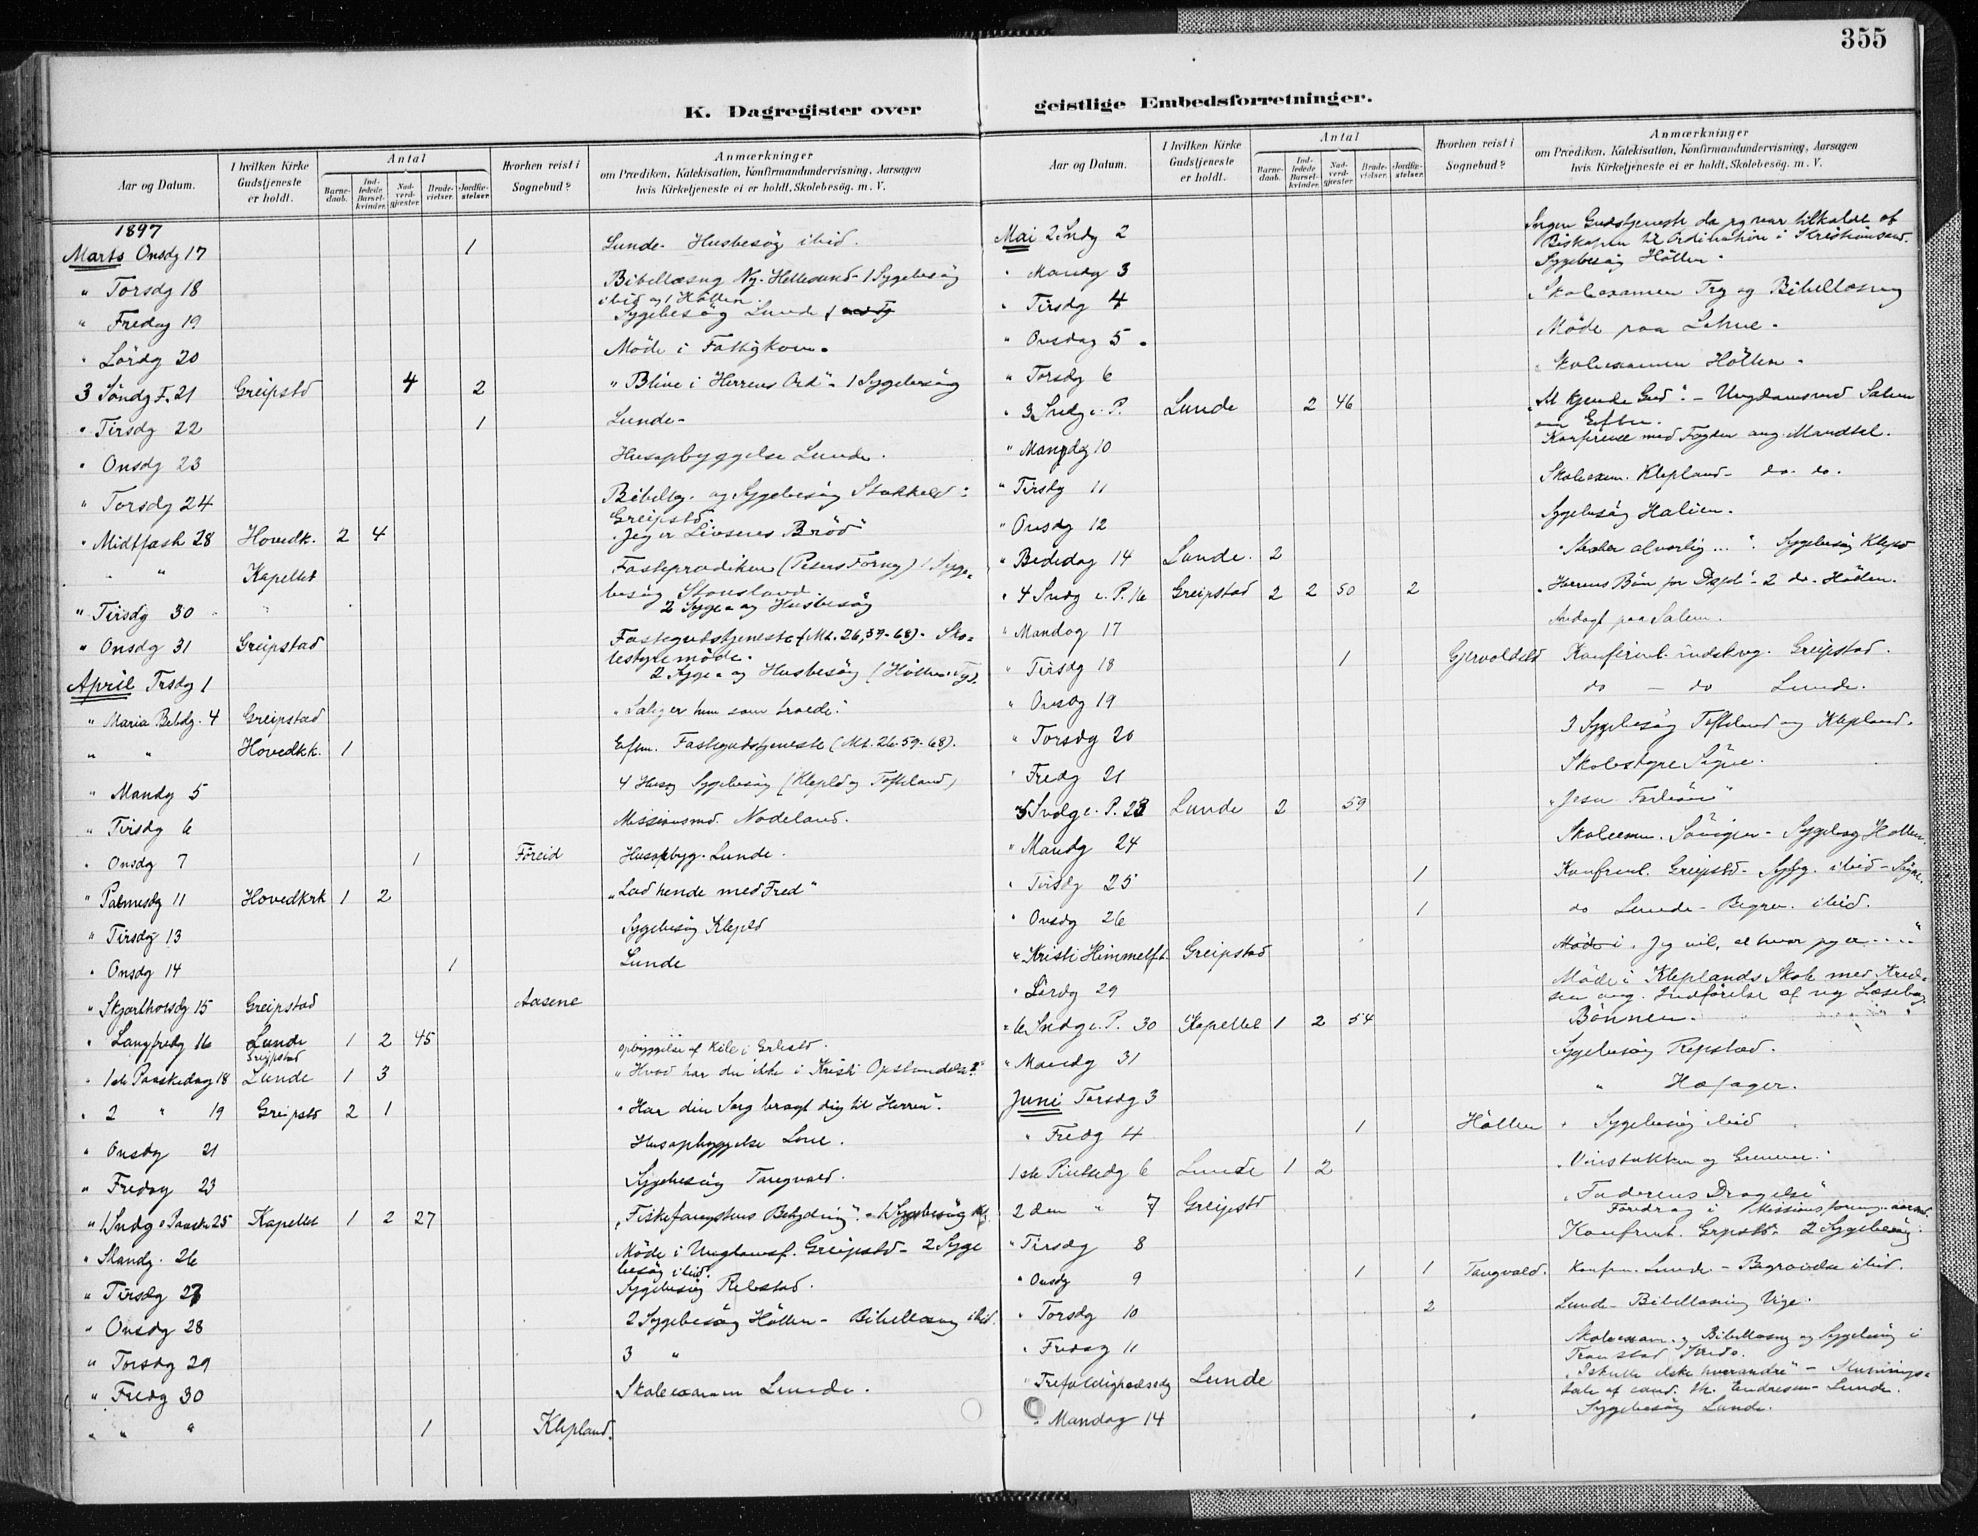 355
K. Dagregister over geistlige Embedsforretninger.
Aar og Datum. I hvilken Kirke Gudstjeneste er holdt. Antal Barnedaab. Indledede Barselkvinder. Nadverdgjæster. Brudevielser. Jordfæstelser. Hvorhen reist i Sognebud? Anmærkninger om Prædiken, Katekisation, Konfirmandundervisning, Aarsagen hvis Kirketjeneste ei er holdt, Skolebesög, m. V.
1897
Marts Onsdg 17 1 Lunde - Husbesög ibid.
" Torsdg 18 Bibellæsng Ny-Hellesund - 1 Sygebesög
ibid og 1 Höllen.
" Fredag 19 Sygebesög Lunde
" Lördg 20 Möde i Fattigkom.
3 Söndg F. 21 Greipstd 4 2 "Blive i Herrens Ord" - 1 Sygebesög
" Tirsdg 22 1 Lunde -
" Onsdg 23 Husopbyggelse Lunde.
" Torsdg 24 Bibellg. og Sygebesög
Greipstd.
" Midtfast 28 Hovedk. 2 4 "Jeg er Livsens Bröd"
" " Kapellet Fasteprædiken (Peters Forng) 1 Sygebesög
" Tirsdg 30 2 Syge- og Husbesög
" Onsdg 31 Greipstad Fastegudstjeneste (Mt. 26,59-68) - Skolestyremöde.
April Trsdg 1 2 Syge- og Husbesög
" Maria Bebdg. 4 Greipstad "Salig er hun som troede."
" " Hovedkk. 1 Eftm. Fastegudstjeneste (Mt. 26.59-68).
" Mandg 5 4 Hus og Sygebesög (Klepld og Tofteland)
" Tirsdg 6 Missionsmd. Nodeland.
" Onsdg 7 1 Föreid Husopbyg. Lunde.
" Palmesdg 11 Hovedkrk 1 2 "Lad hende med Fred"
" Tirsdg 13 Sygebesög Klepld
" Onsdg 14 1 Lunde
" Skjærtorsdg 15 Greipstad Aasene
" Langfredg 16 Lunde 1 2 45
Greipstad opbyggelse af Kile i
" 1ste Paaskedag 18 Lunde 1 3 "Hvad har du ikke i Kristi Opstandelse?"
" 2 " 19 Greipstd 2 1 "Har din Sorg bragt dig til Herren".
" Onsdg 21 Husopbyggelse
" Fredag 23 Sygebesög Tangvald.
" 1 Sndg e Paaske 25 Kapellet 1 2 27 "Fiskefangstens Betydning" - 1 Sygebesög
" Mandg. 26 Möde i Ungdomsf. Greipstd - 2 Sygebesög ibid.
" Tirsdg 27 Sygebesög Repstad.
" Onsdg 28 2 Sygebesög Höllen - Bibellæsng ibid.
" Torsdg 29 3 "
" Fredg 30 Skoleexamen Lunde.
" " " 1 Klepland.
Aar og Datum. I hvilken Kirke Gudstjeneste er holdt. Antal Barnedaab. Indledede Barselkvinder. Nadverdgjæster. Brudevielser. Jordfæstelser. Hvorhen reist i Sognebud? Anmærkninger om Prædiken, Katekisation, Konfirmandundervisning, Aarsagen hvis Kirketjeneste ei er holdt, Skolebesög, m. V.
Mai 2 Sndg 2 Ingen Gudstjeneste da jeg var tilkaldt af
Biskopen til Ordination i Kristiansand.
" Mandg 3 Sygebesög Höllen.
" Tirsdg 4 Skoleexamen Try og Bibellæsng
" Onsdag 5 Möde paa
" Torsdg 6 Skoleexamen Höllen.
" 3 Sndg e. P. Lunde 2 46 "At kjende Gud". - Ungdomsmd Salem
om Eftm.
" Mandag 10 Konference med Fogden ang. Mandtal.
" Tirsdg 11 Skoleexm. Klepland - do. do.
" Onsdg 12 Sygebesög
" Bededag 14 Lunde. 2 Sygebesög Klepld
" 4 Sndg e. P. 16 Greipstad 2 2 50 2 "Herrens Bön for - 2 do. Höllen.
" Mandag 17 Andagt paa Salem.
" Tirsdg 18 1 Gjervoldstd Konfirmt. indskrvg. Greipstad.
" Onsdg 19 do - do Lunde.
" Torsdg 20 3 Sygebesög Toftland og Klepland.
" Fredg 21 Skolestyre Sögne.
5 Sndg e. P. 23 Lunde 2 59 "Jesu Forbön"
" Mandg 24 Skoleexm. - Sygebsg Höllen.
" Tirsdg 25 1 Konfirmt. Greipstd - Sygbg. ibid - Sögne.
" Onsdg 26 1 do Lunde - Begrav. ibid.
" Kristi Himmelft. Greipstad "Jeg vil, at hvor jeg er ...."
" Lördg 29 Möde i Kleplands Skole med Kredsen ang. Indförelse af ny Læsebog.
" 6 Sndg e. P. 30 Kapellet 1 2 54 Bönnen.
" Mandg 31 Sygebesög Repstad.
Juni Torsdg 3 "
" Fredg 4 1 Höllen " Sygebesög ibid
1ste Pintsedg 6 Lunde 1 2 "Vinstokken og Grenene."
2 den " 7 Greipstd "Faderens Dragelse"
Foredrag i Missionsforeng.
" Tirsdg 8 Konfirmt. Grpstd - 2 Sygebesög.
" Onsdg 9 1 1 Tangvald. Konfirm. Lunde - Begravelse ibid.
" Torsdg 10 2 Lunde - Bibellæsning
" Fredag 11 Skoleexam. og Bibellæsng og Sygebesög i
Kreds.
" Trefoldighedssdg Lunde "I skulle elske hverandre" -
tale af cand. th. Endresen - Lunde.
" Mandag 14 Sygebesög Lunde.